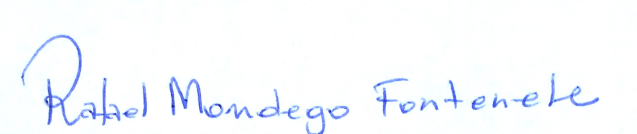 Rafael Mondego Fontenele